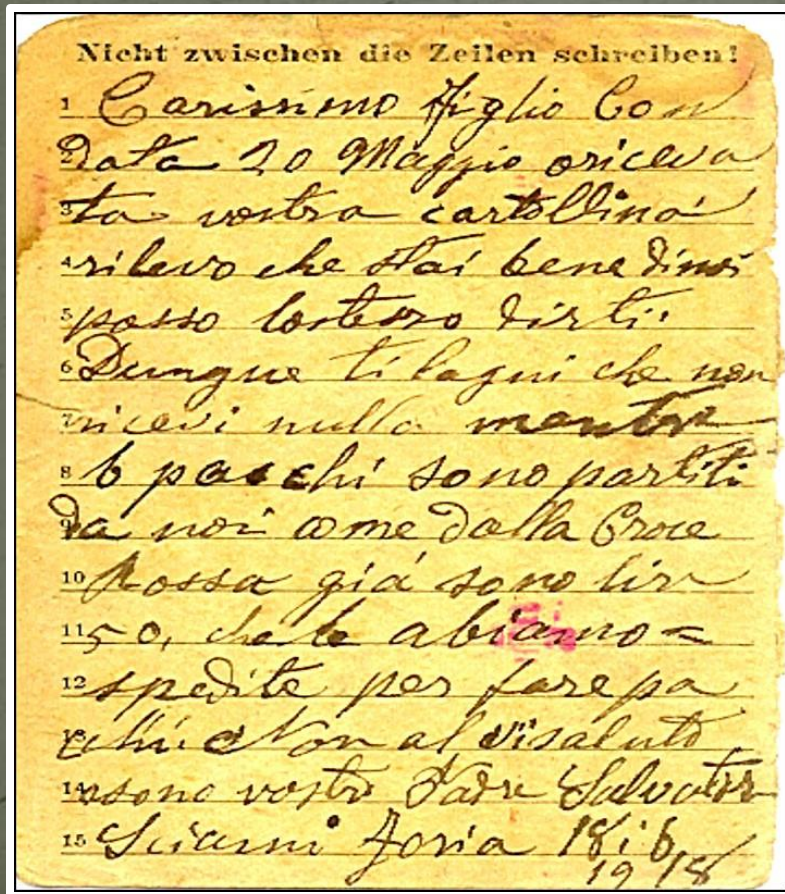 Nicht zwischen die Zeilen schreiben!
1 Carissimo figlio Con
2 data 20 Maggio oriceva
3 ta vostra cartollina
4 rilevo che stai bene
5 posso lostesso dirti.
6 Dungue ti lagni che non
7 ricevi nulla mentre
8 6 pacchi sono partiti
9 da noi come dalla Croce
10 Rossa giá sono lir
11 50, che le abiamo =
12 spedite per fare pa
13 chi. Non al vi saluto
14 sono vostro Padre Salvator
15 Sciarni 18 i 6
19 18